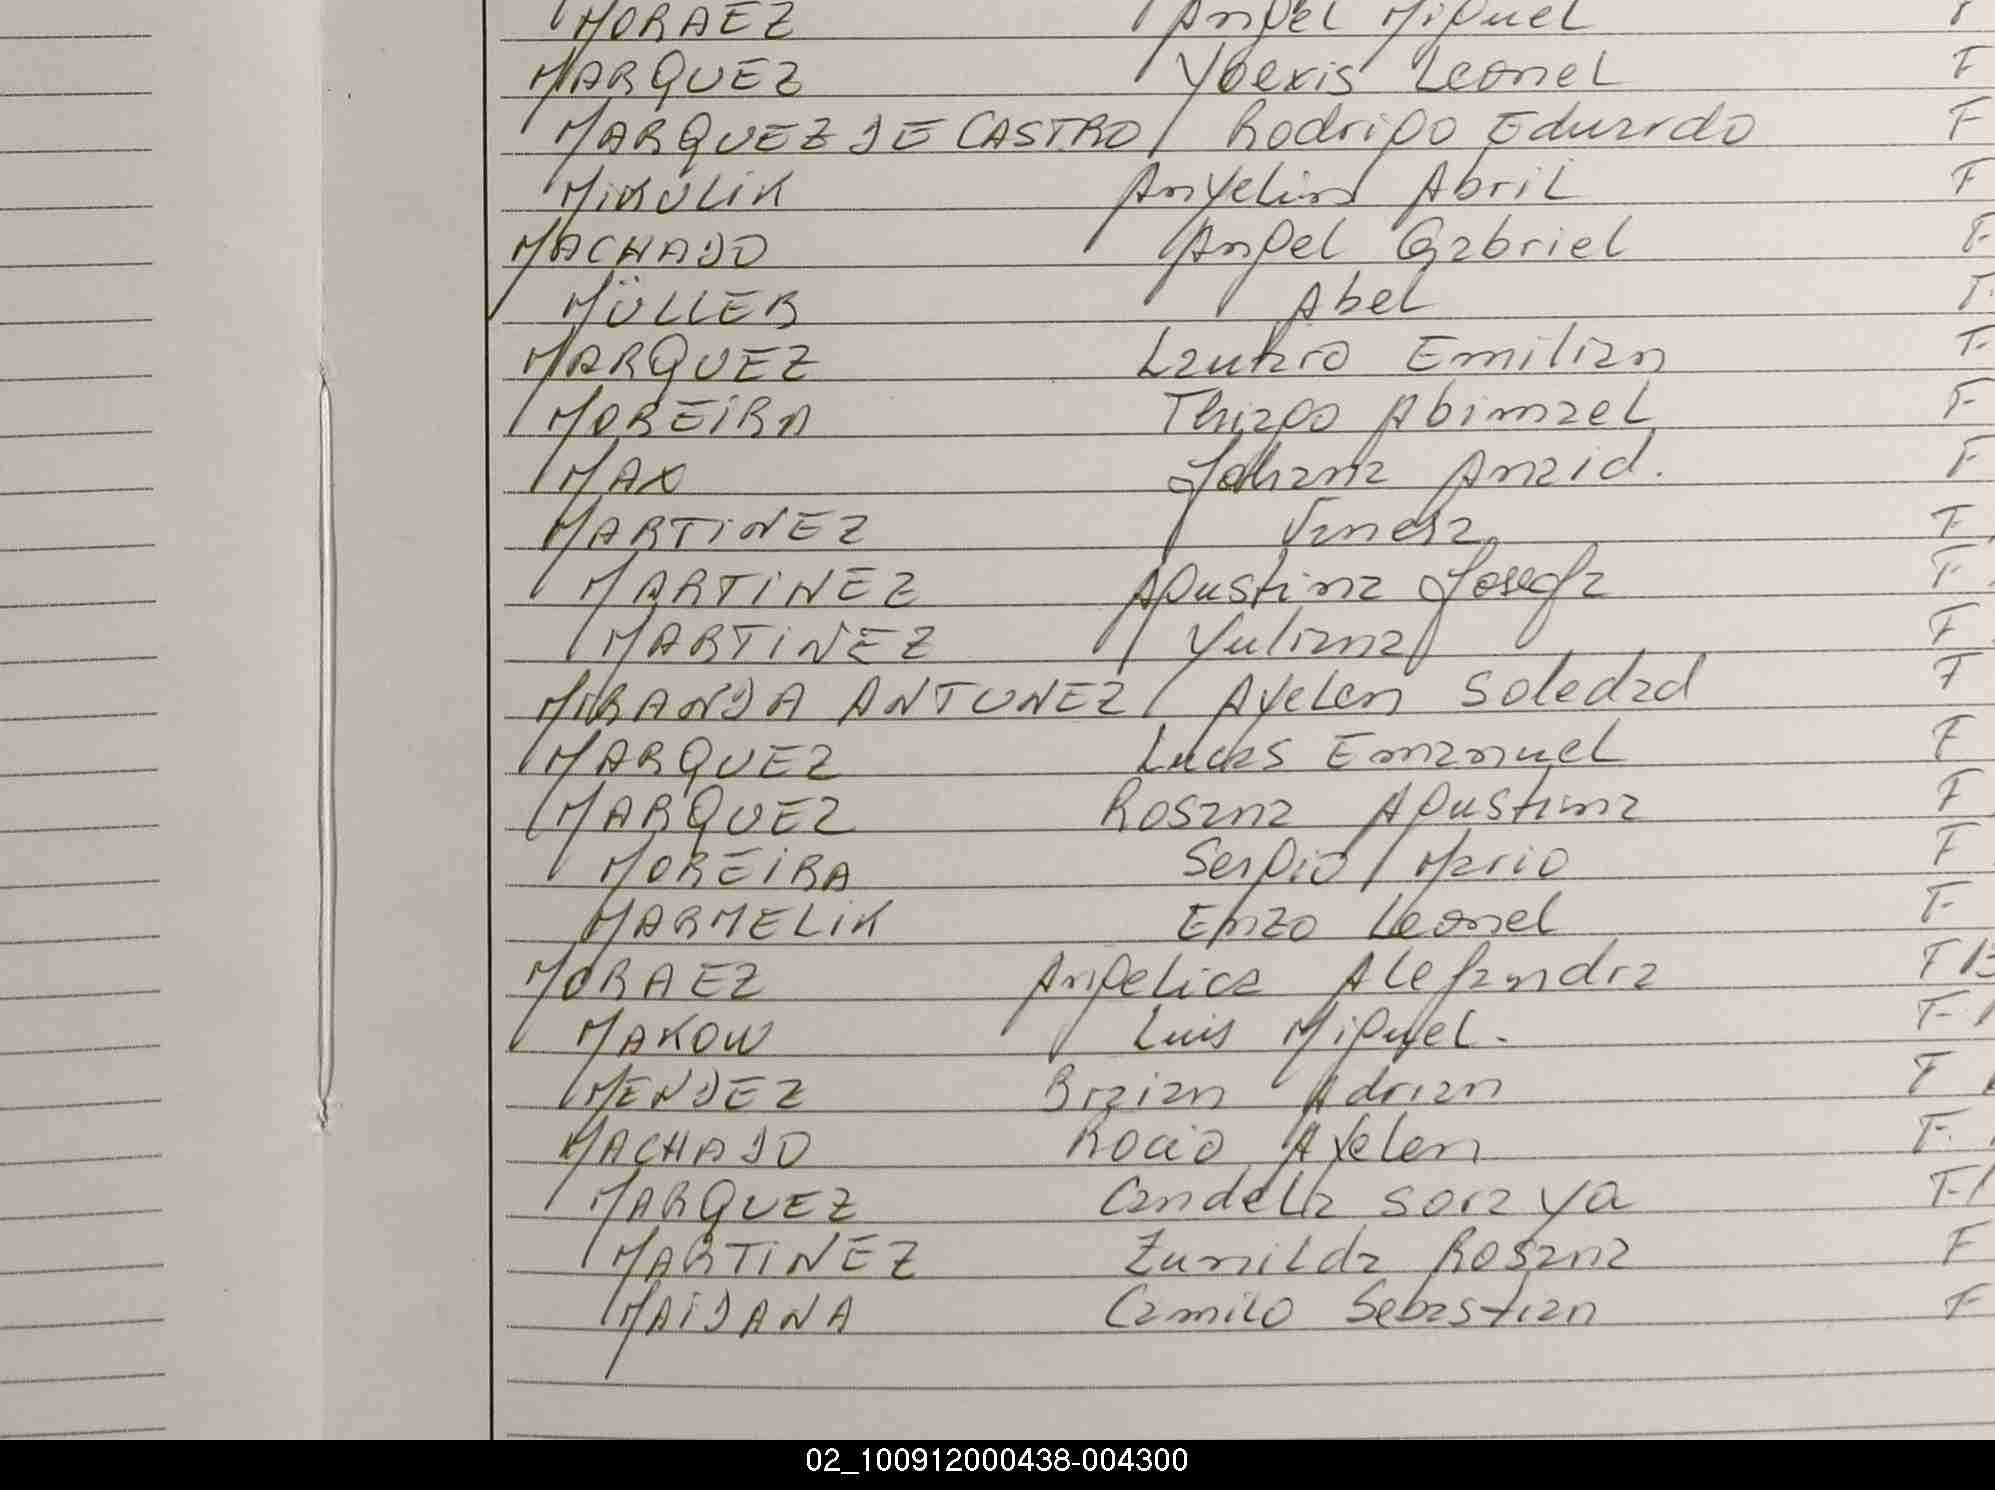 MORAEZ Angel Miguel F
MARQUEZ Yoexis Leonel F
MARQUEZ DE CASTRO Rodrigo Eduardo F
MIKULIK Anyelin Abril F
MACHADO Angel Gabriel F
MÜLLER Abel F
MARQUEZ Lautaro Emilian F
MOREIRA Thiago Abimael F
MAX Johana Anaid. F
MARTINEZ Vanesa F
MARTINEZ Agustina Josefa F
MARTINEZ Yuliana F
MIRANDA ANTUNEZ Ayelen Soledad F
MARQUEZ Lucas Emanuel F
MARQUEZ Rosana Agustina F
MOREIRA Sergio Mario F
MARMELIK Enzo Leonel F
MORAEZ Angelica Alejandra F
MAKOW Luis Miguel. F
MENDEZ Braian Adrian F
MACHADO Rocio Ayelen F
MARQUEZ Candela Soraya F
MARTINEZ Zunilda Rosana F
MAIDANA Camilo Sebastian F
02_100912000438-004300